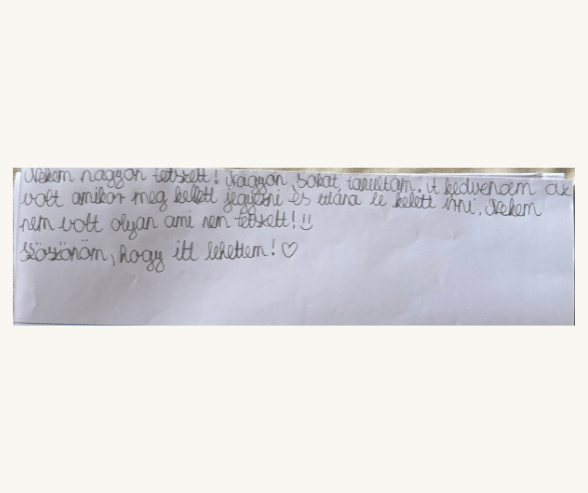 Nekem nagyon tetszett! Nagyon sokat tanultam. A kedvencem az
volt amikor meg kellett jegyezni és utána le kelett írni. Nekem
nem volt olyan ami nem tetszett! :)
Köszönöm, hogy itt lehettem! ♡